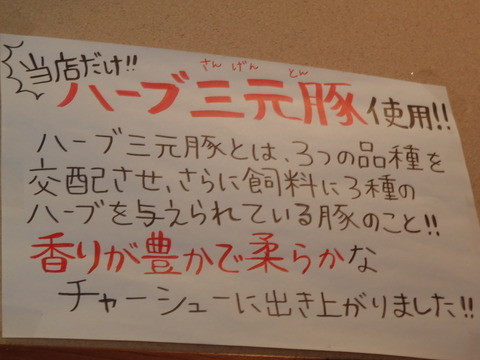 当店だけ!!
さんげんとん
ハーブ三元豚使用!!
ハーブ三元豚とは、3つの品種を
交配させ、さらに飼料に3種の
ハーブを与えられている豚のこと!!
香りが豊かで柔らかな
チャーシューに出き上がりました!!